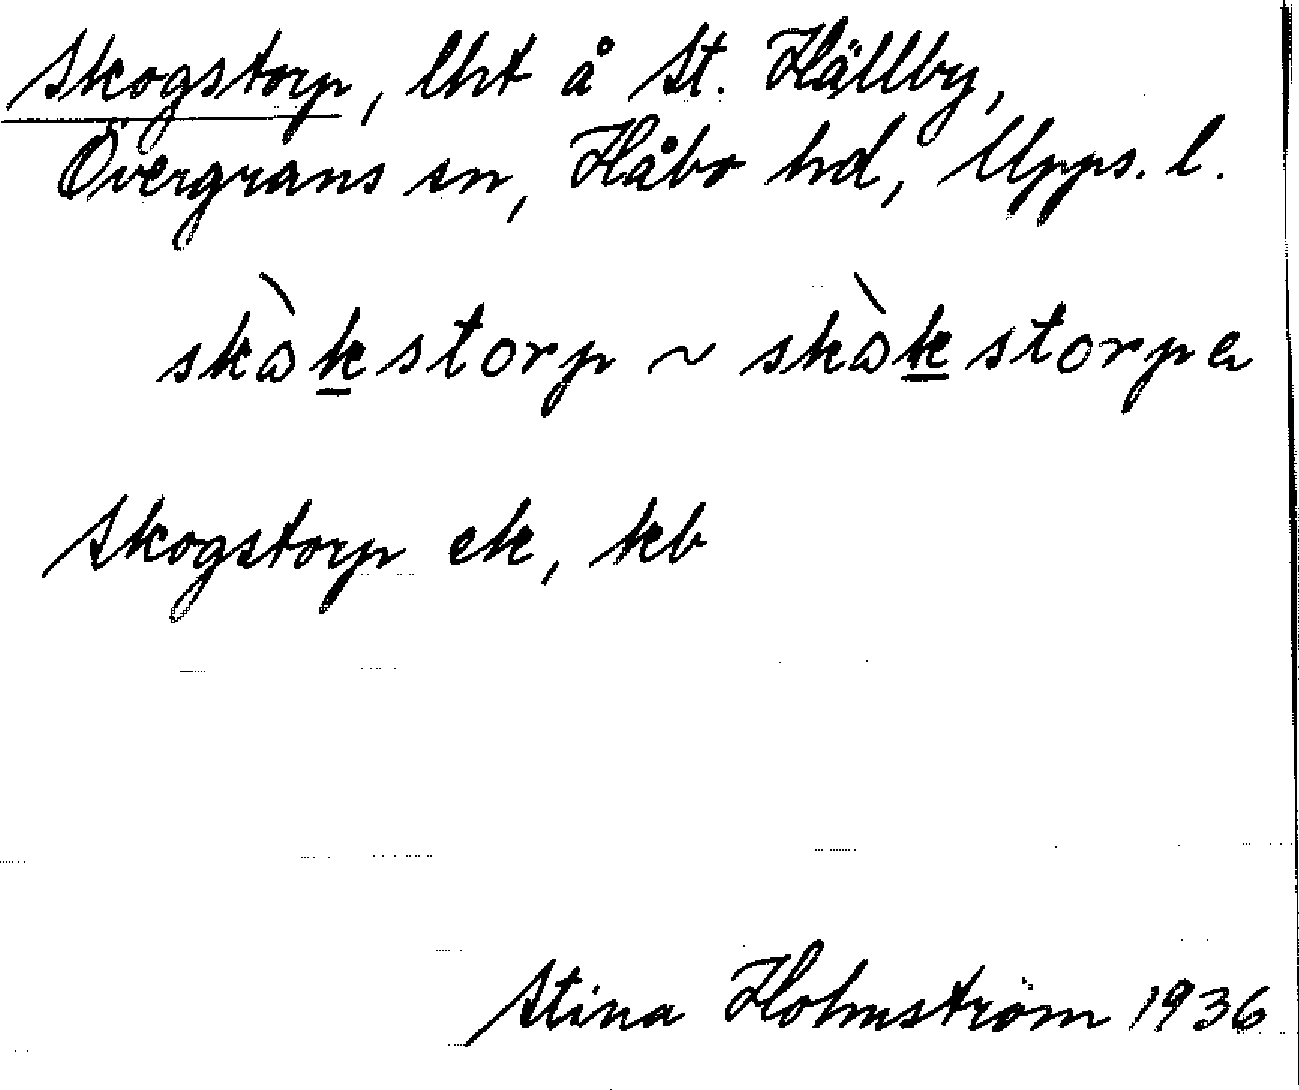 Skogstorp, lht å St. Hällby,
Övergrans sn, Håbo hd, Upps. l.
skòkstorp ~ skòkstorpa
Skogstorp ek, kb
Stina Holmström 1936